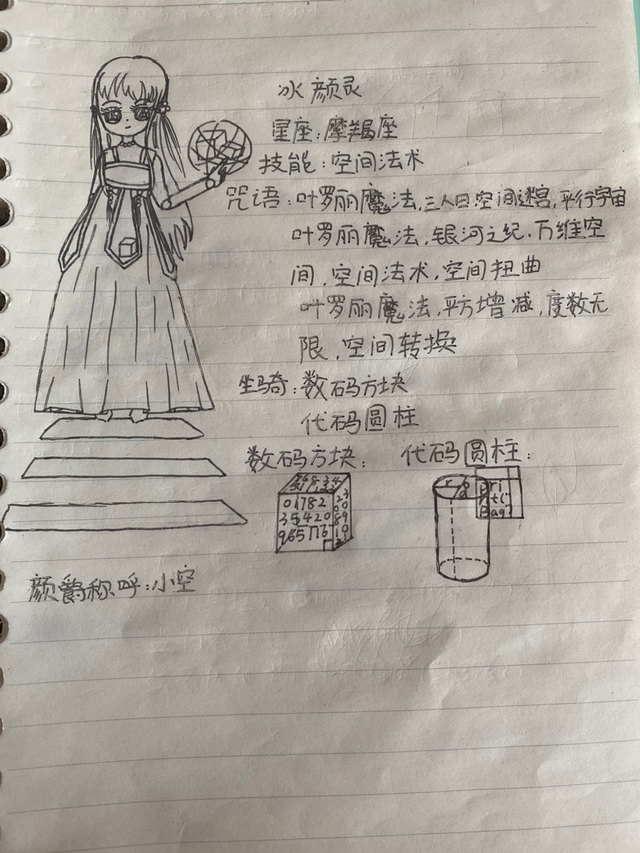 冰颜灵
星座：摩羯座
技能：空间法术
咒语：叶罗丽魔法，三人曰空间迷宫，平行宇宙
叶罗丽魔法，银河之纪，万维空
间，空间法术，空间扭曲
叶罗丽魔法，平方增减，度数无
限，空间转换
坐骑：数码方块
代码圆柱
数码方块：代码圆柱：
01782
35420
颜爵称呼：小空